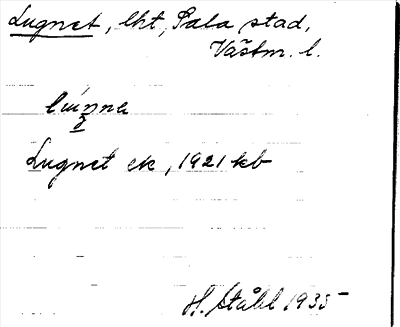 Lugnet, lht, Sala stad,
Västm. l.
Lugnet ek, 1921 kb
H. Ståhl 1935